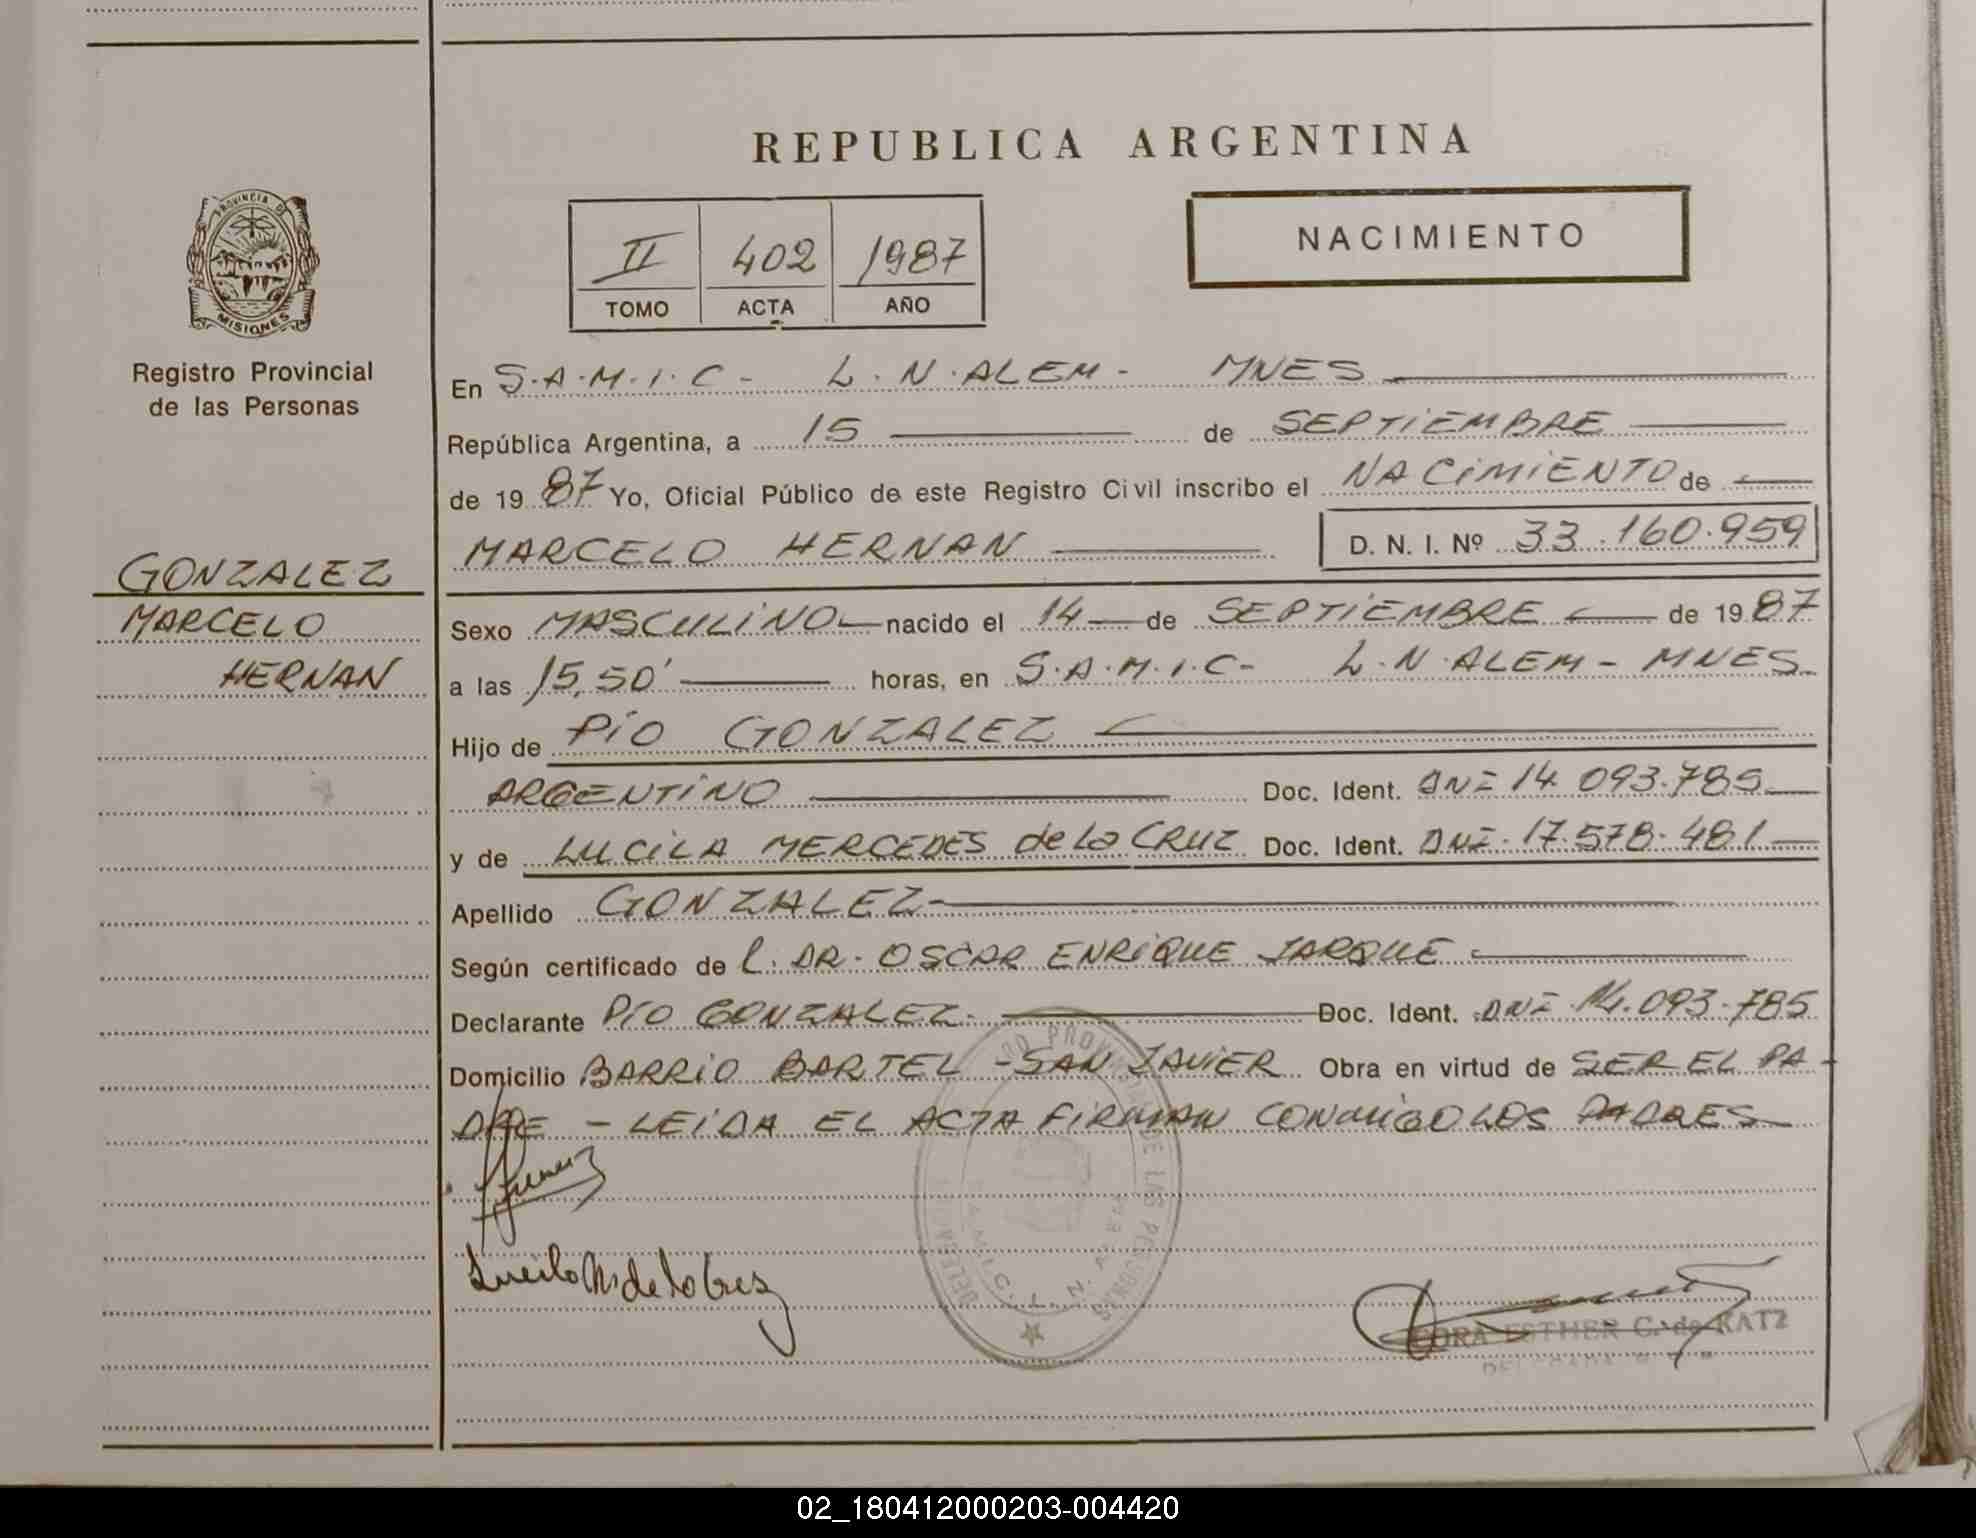 REPUBLICA ARGENTINA
PROVINCIA DE
MISIONES
Registro Provincial
de las Personas
GONZALEZ
MARCELO
HERNAN
II 402 1987
TOMO ACTA AÑO
NACIMIENTO
En S.A.M.I.C- L.N.ALEM- MNES
República Argentina, a 15 de SEPTIEMBRE
de 1987 Yo, Oficial Público de este Registro Civil inscribo el NACIMIENTO de
MARCELO HERNAN D. N. I. Nº 33.160.959
Sexo MASCULINO nacido el 14 de SEPTIEMBRE de 1987
a las 15,50' horas, en S.A.M.I.C- L.N.ALEM- MNES
Hijo de PIO GONZALEZ
ARGENTINO Doc. Ident. DNI 14.093.785
y de LUCILA MERCEDES de la CRUZ Doc. Ident. DNI. 17.578.481
Apellido GONZALEZ
Según certificado de l. DR. OSCAR ENRIQUE JARQUE
Declarante PIO GONZALEZ. Doc. Ident. DNI 14.093.785
Domicilio BARRIO BARTEL - SAN JAVIER Obra en virtud de SER EL PA-
DRE - LEIDA EL ACTA FIRMAN CONMIGO LOS PADRES
Lucila M. de la Cruz
S.A.M.I.C. L. N. ALEM
DE LAS PERSONAS
CORA ESTHER C. de KATZ
02_180412000203-004420